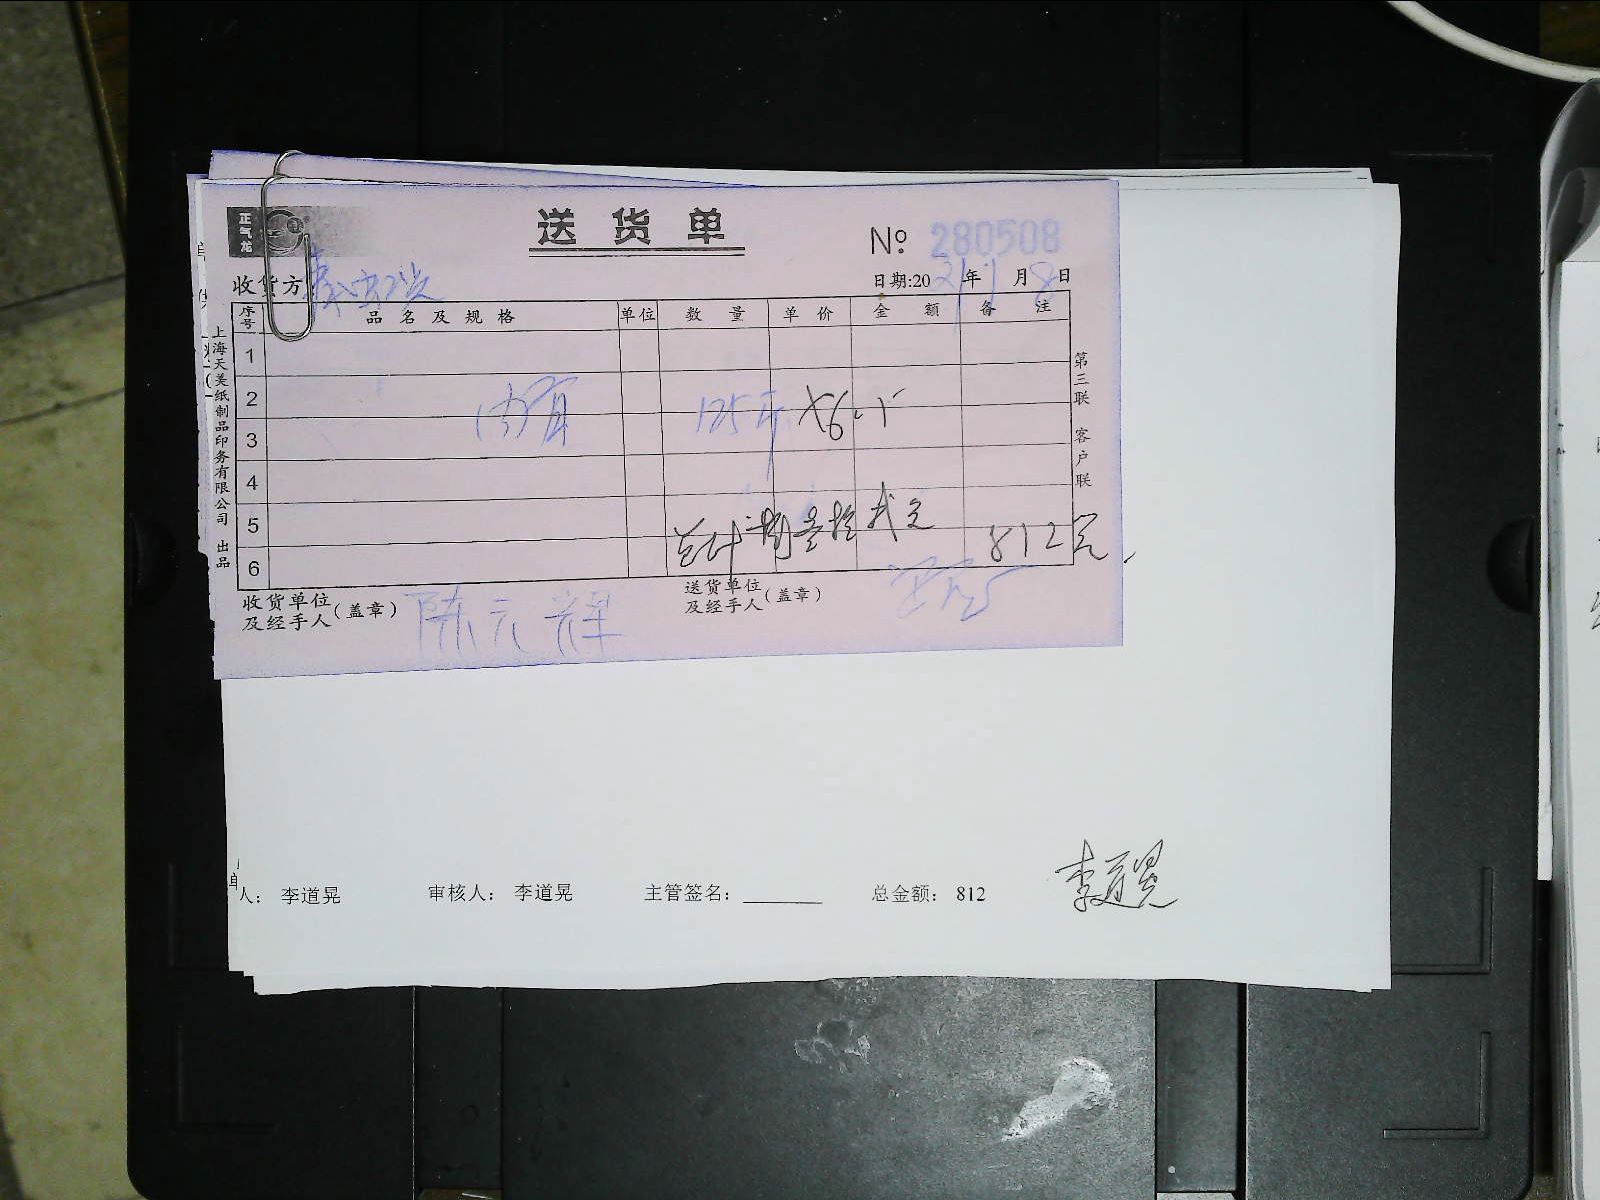 正气龙
送货单
№ 280508
收货方
日期:2021年1月8日
序号 品名及规格 单位 数量 单价 金额 备注
1
2
125斤 ×6.5
3
4
5
总计 捌 拾 元 812元
6
收货单位及经手人(盖章) 陈元辉
送货单位及经手人(盖章)
上海天美纸制品印务有限公司 出品
第三联 客户联
人: 李道晃 审核人: 李道晃 主管签名: 总金额: 812
李道晃